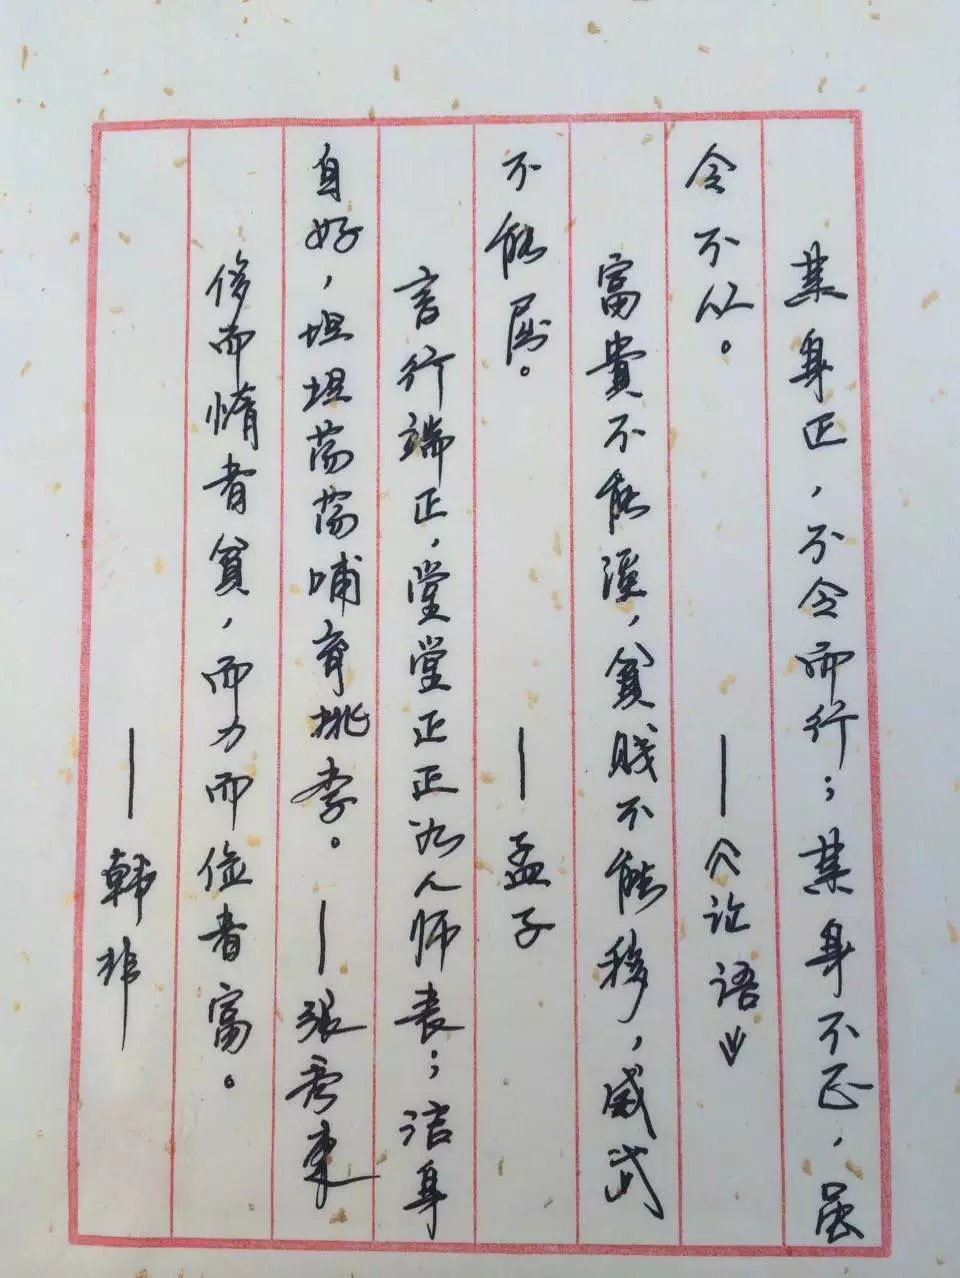 其身正，不令而行；其身不正，虽
令不从。 —《论语》
富貴不能淫，貧賤不能移，威武
不能屈。 —孟子
言行端正，堂堂正正为人师表；洁身
自好，坦坦荡荡哺育桃李。 —張秀東
侈而惰者貧，而力而俭者富。
—韩非